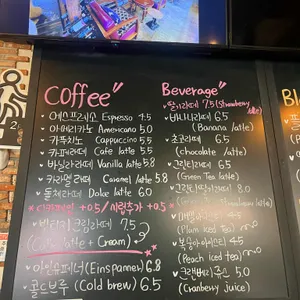 coffee
에스프레소 Espresso 4.5
아메리카노 Americano 5.0
카푸치노 Cappuccino 5.5
카페라떼 Cafe latte 5.5
바닐라라떼 Vanilla latte 5.8
카라멜라떼 Caramel latte 5.8
돌체라떼 Dolce latte 6.0
+0.5 / 시럽추가 +0.5
크림라떼 7.5
latte + Cream)
아인슈페너 (Einspanner) 6.8
콜드브루 (Cold brew) 6.5
Beverage
딸기라떼 7.5 (Strawberry latte)
바나나라떼 6.5
(Banana latte)
초코라떼 6.5
(Chocolate latte)
그린티라떼 6.5
(Green Tea latte)
(Plum Iced Tea)
복숭아아이스티 4.5
(Peach iced tea)
크랜베리쥬스 5.0
(Cranberry Juice)
Bl
2